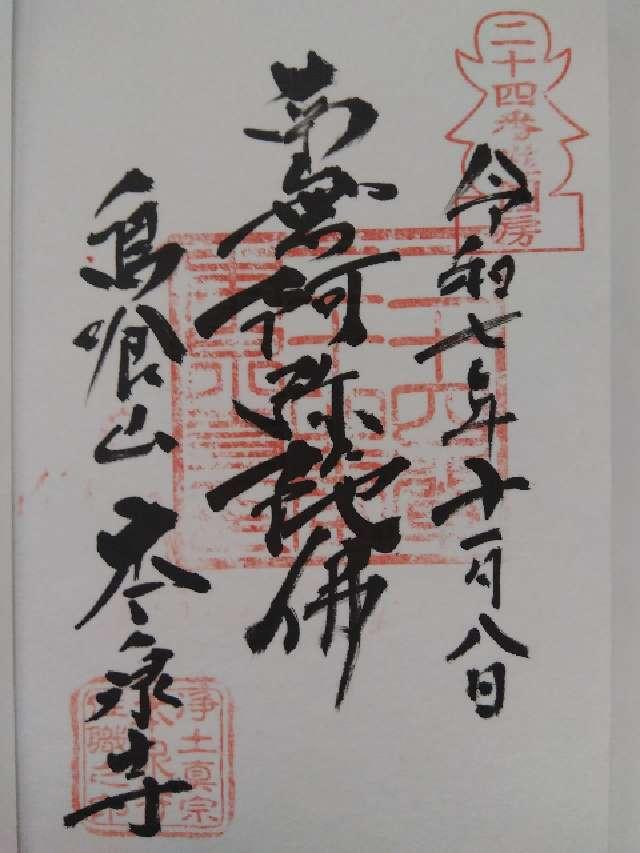 二十四番唯円房
令和七年十一月八日
南無阿弥陀佛
鳥喰山 本泉寺
浄土真宗
本泉寺
住職之印